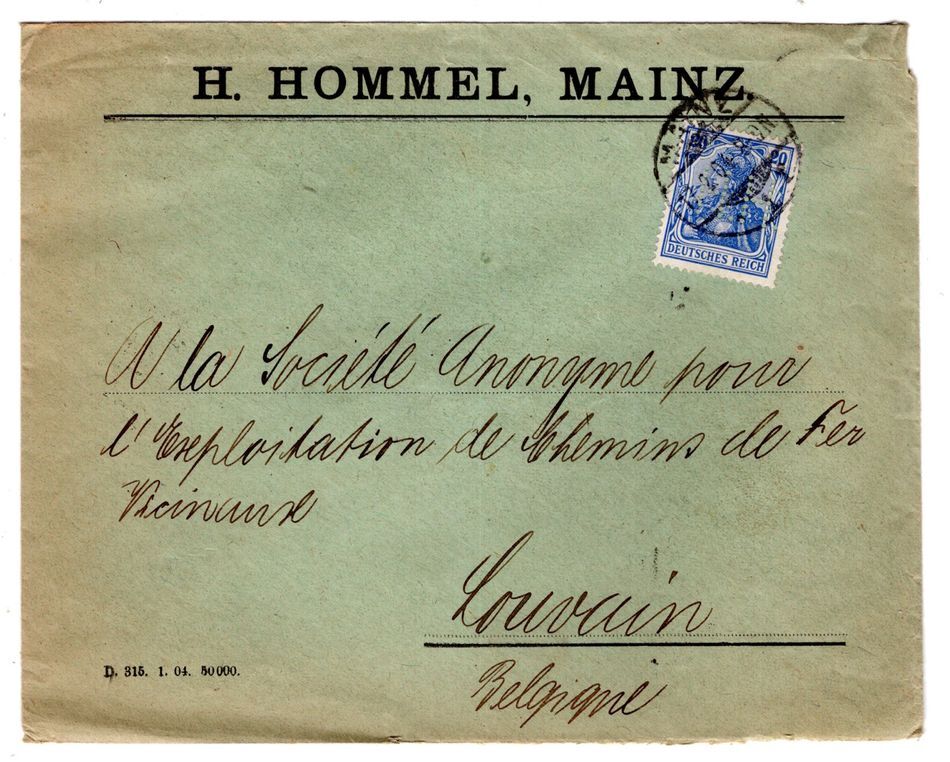 H. HOMMEL, MAINZ.
MAINZ
20 20
DEUTSCHES REICH
A la Société Anonyme pour
l'Exploitation de Chemins de Fer
Vicinaux
Louvain
D. 315. 1. 04. 50000.
Belgique